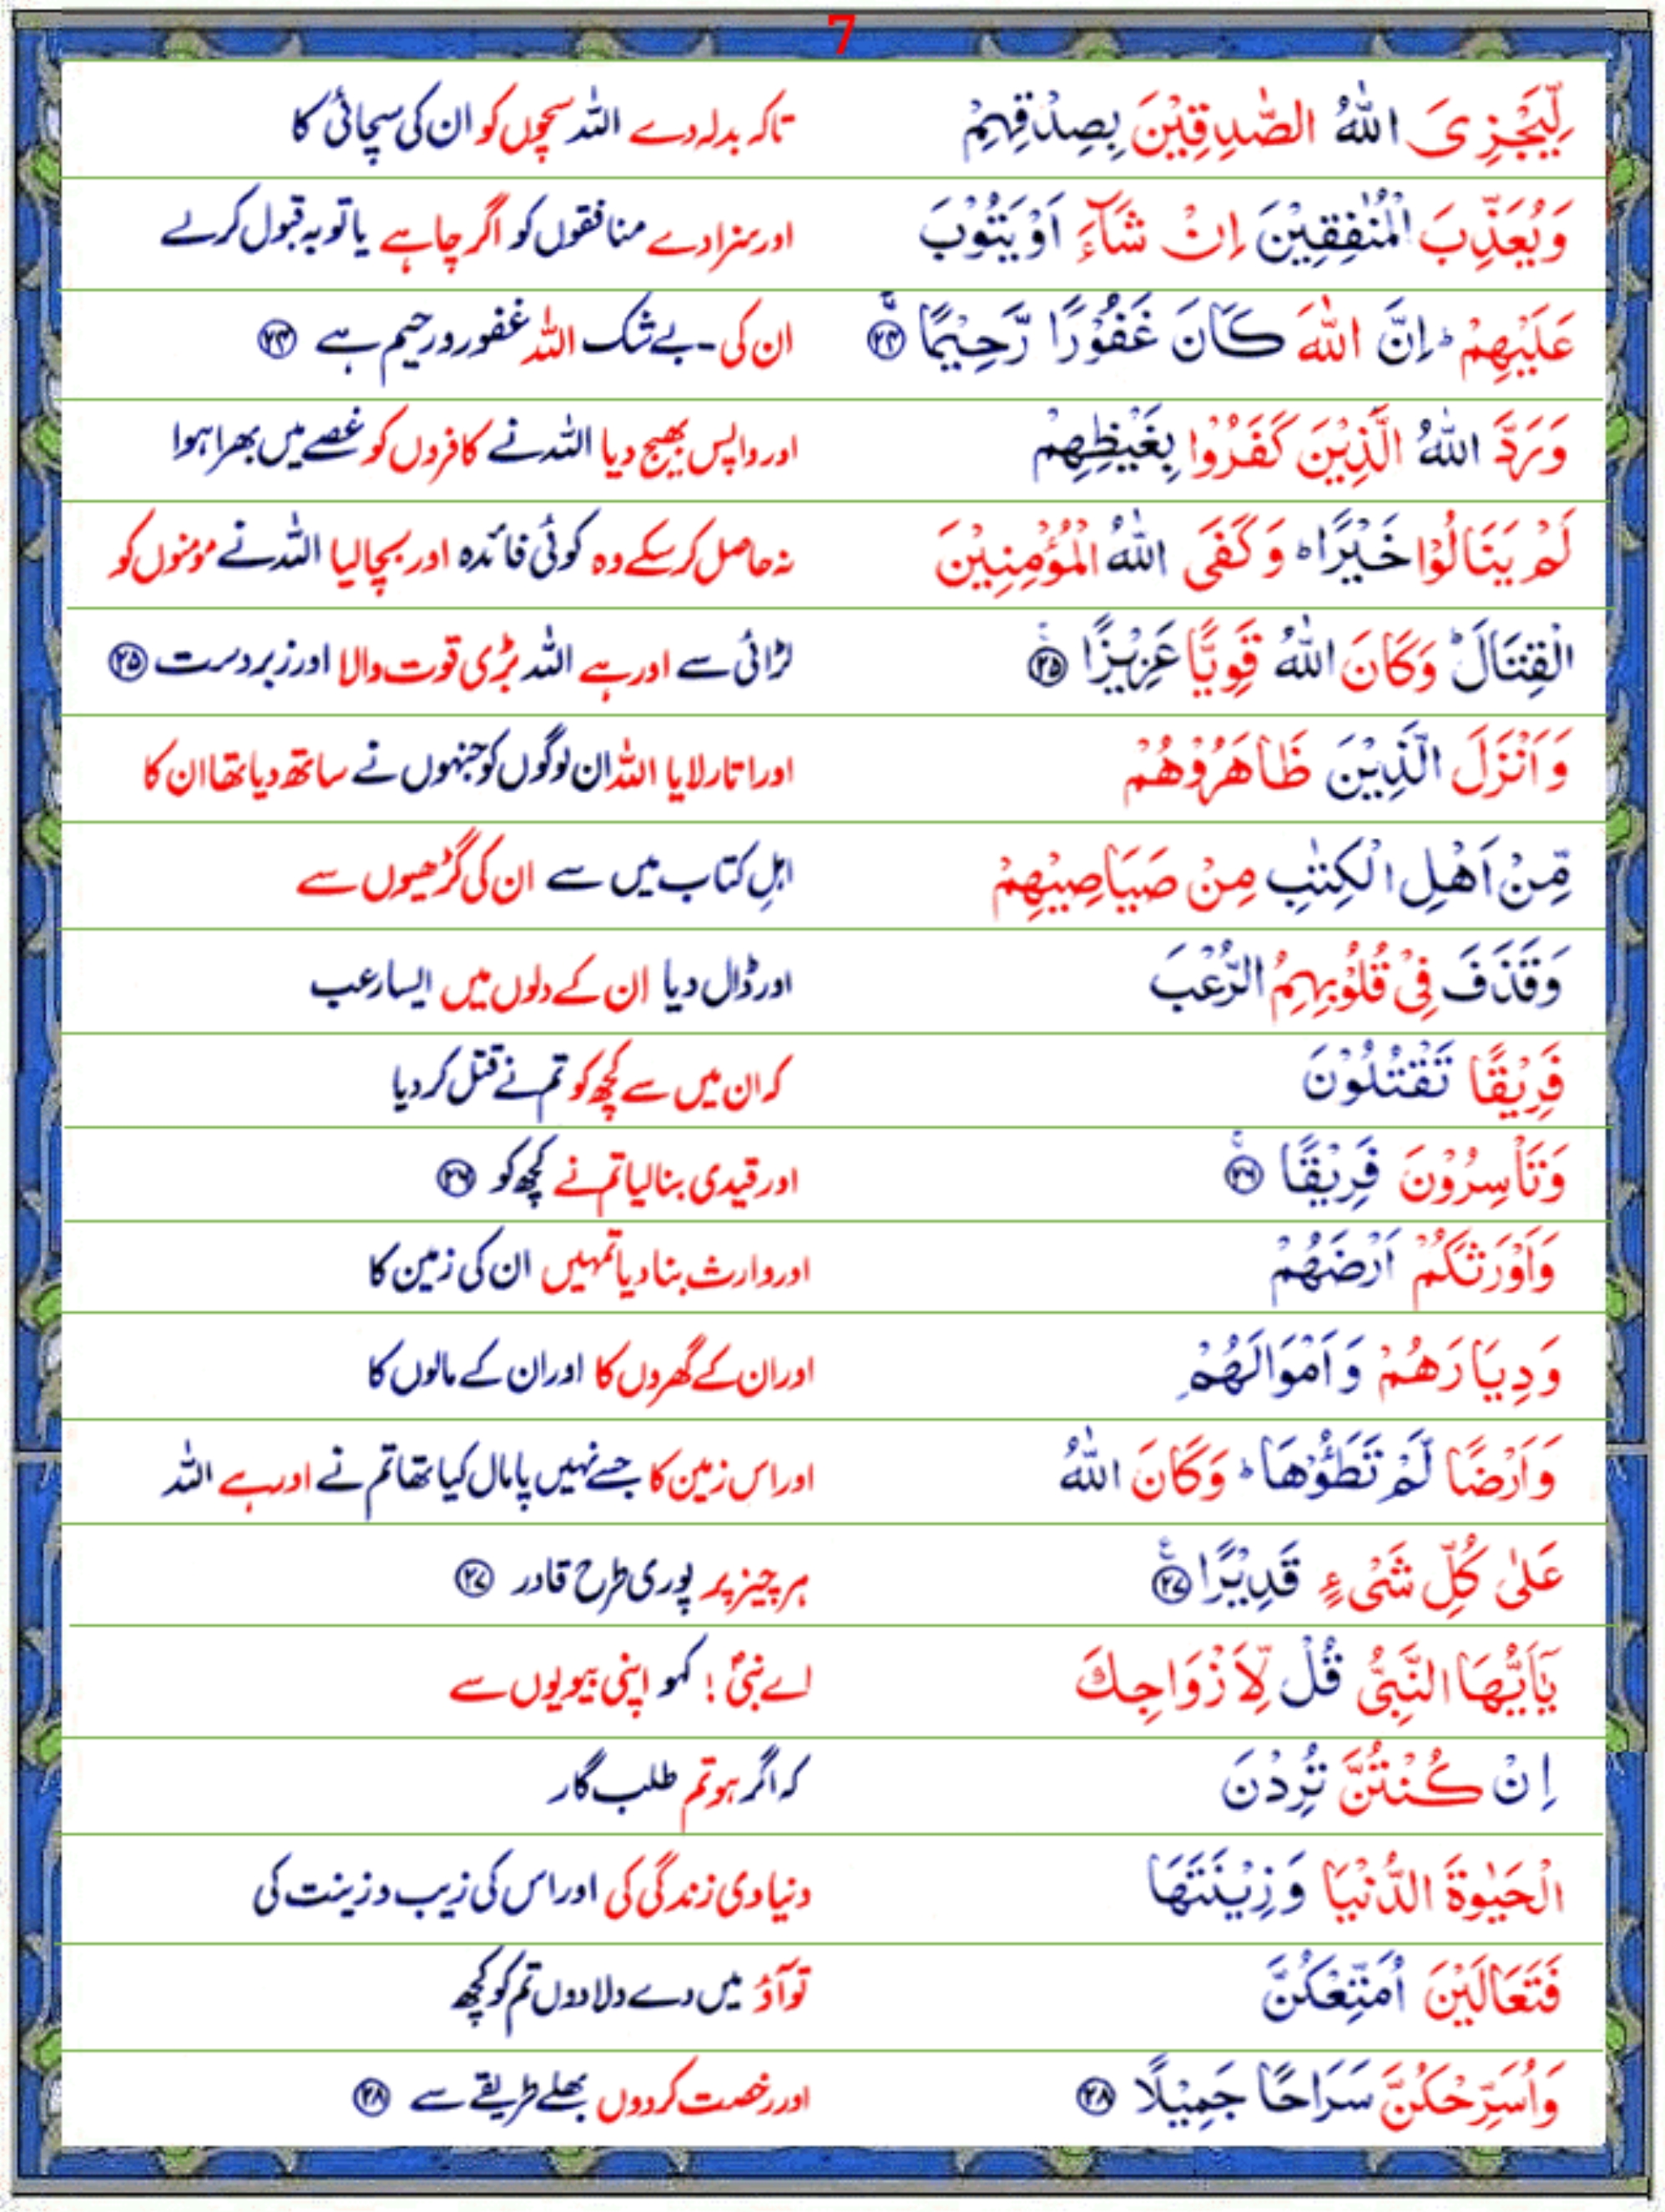 7
لِّيَجْزِىَ اللّٰهُ الصّٰدِقِيْنَ بِصِدْقِهِمْ تاکہ بدلہ دے اللہ سچّوں کو ان کی سچائی کا
وَيُعَذِّبَ الْمُنٰفِقِيْنَ اِنْ شَآءَ اَوْ يَتُوْبَ اور سزا دے منافقوں کو اگر چاہے یا توبہ قبول کرلے
عَلَيْهِمْ ؕ اِنَّ اللّٰهَ كَانَ غَفُوْرًا رَّحِيْمًا ۚ ﴿۲۴﴾ ان کی۔ بے شک اللہ غفور و رحیم ہے ﴿۲۴﴾
وَرَدَّ اللّٰهُ الَّذِيْنَ كَفَرُوْا بِغَيْظِهِمْ اور واپس بھیج دیا اللہ نے کافروں کو غصے میں بھرا ہوا
لَمْ يَنَالُوْا خَيْرًا ؕ وَكَفَى اللّٰهُ الْمُؤْمِنِيْنَ نہ حاصل کرسکے وہ کوئی فائدہ اور بچالیا اللہ نے مومنوں کو
الْقِتَالَ ؕ وَكَانَ اللّٰهُ قَوِيًّا عَزِيْزًا ۚ ﴿۲۵﴾ لڑائی سے اور ہے اللہ بڑی قوت والا اور زبردست ﴿۲۵﴾
وَاَنْزَلَ الَّذِيْنَ ظَاهَرُوْهُمْ اور اتار لایا اللہ ان لوگوں کو جنہوں نے ساتھ دیا تھا ان کا
مِّنْ اَهْلِ الْكِتٰبِ مِنْ صَيَاصِيْهِمْ اہلِ کتاب میں سے ان کی گڑھیوں سے
وَقَذَفَ فِىْ قُلُوْبِهِمُ الرُّعْبَ اور ڈال دیا ان کے دلوں میں ایسا رعب
فَرِيْقًا تَقْتُلُوْنَ کہ ان میں سے کچھ کو تم نے قتل کردیا
وَتَاْسِرُوْنَ فَرِيْقًا ۚ ﴿۲۶﴾ اور قیدی بنالیا تم نے کچھ کو ﴿۲۶﴾
وَاَوْرَثَكُمْ اَرْضَهُمْ اور وارث بنادیا تمہیں ان کی زمین کا
وَدِيَارَهُمْ وَاَمْوَالَهُمْ اور ان کے گھروں کا اور ان کے مالوں کا
وَاَرْضًا لَّمْ تَطَـُٔوْهَا ؕ وَكَانَ اللّٰهُ اور اس زمین کا جسے نہیں پامال کیا تھا تم نے اور ہے اللہ
عَلٰى كُلِّ شَىْءٍ قَدِيْرًا ﴿۲۷﴾ ع ہر چیز پر پوری طرح قادر ﴿۲۷﴾
يٰٓاَيُّهَا النَّبِىُّ قُلْ لِّاَزْوَاجِكَ اے نبیؐ! کہو اپنی بیویوں سے
اِنْ كُنْتُنَّ تُرِدْنَ کہ اگر ہو تم طلب گار
الْحَيٰوةَ الدُّنْيَا وَزِيْنَتَهَا دنیاوی زندگی کی اور اس کی زیب و زینت کی
فَتَعَالَيْنَ اُمَتِّعْكُنَّ تو آؤ میں دے دلا دوں تم کو کچھ
وَاُسَرِّحْكُنَّ سَرَاحًا جَمِيْلًا ﴿۲۸﴾ اور رخصت کردوں بھلے طریقے سے ﴿۲۸﴾